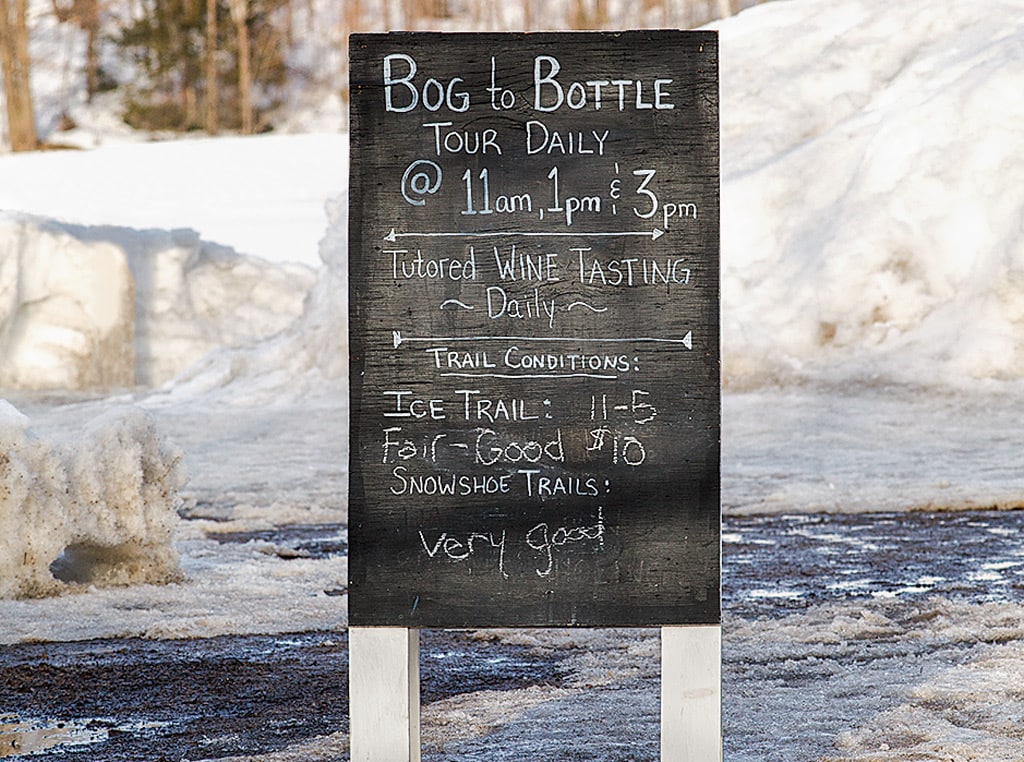 BOG to BOTTLE
TOUR DAILY
@ 11am, 1pm & 3pm
Tutored WINE TASTING
~ Daily ~
TRAIL CONDITIONS:
ICE TRAIL: 11-5
Fair-Good $10
SNOWSHOE TRAILS:
very good